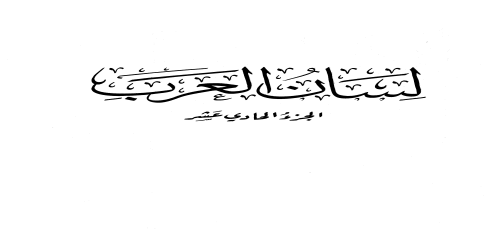 لِسَانُ العَرَبِ
الجزءُ الحادي عَشر